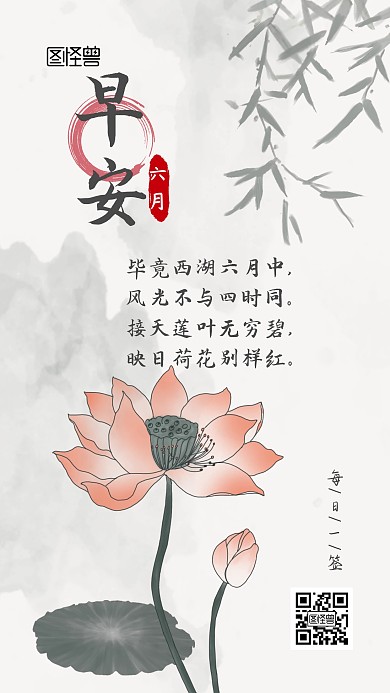 图怪兽
早安
六月
毕竟西湖六月中，
风光不与四时同。
接天莲叶无穷碧，
映日荷花别样红。
每/日/一/签
图怪兽